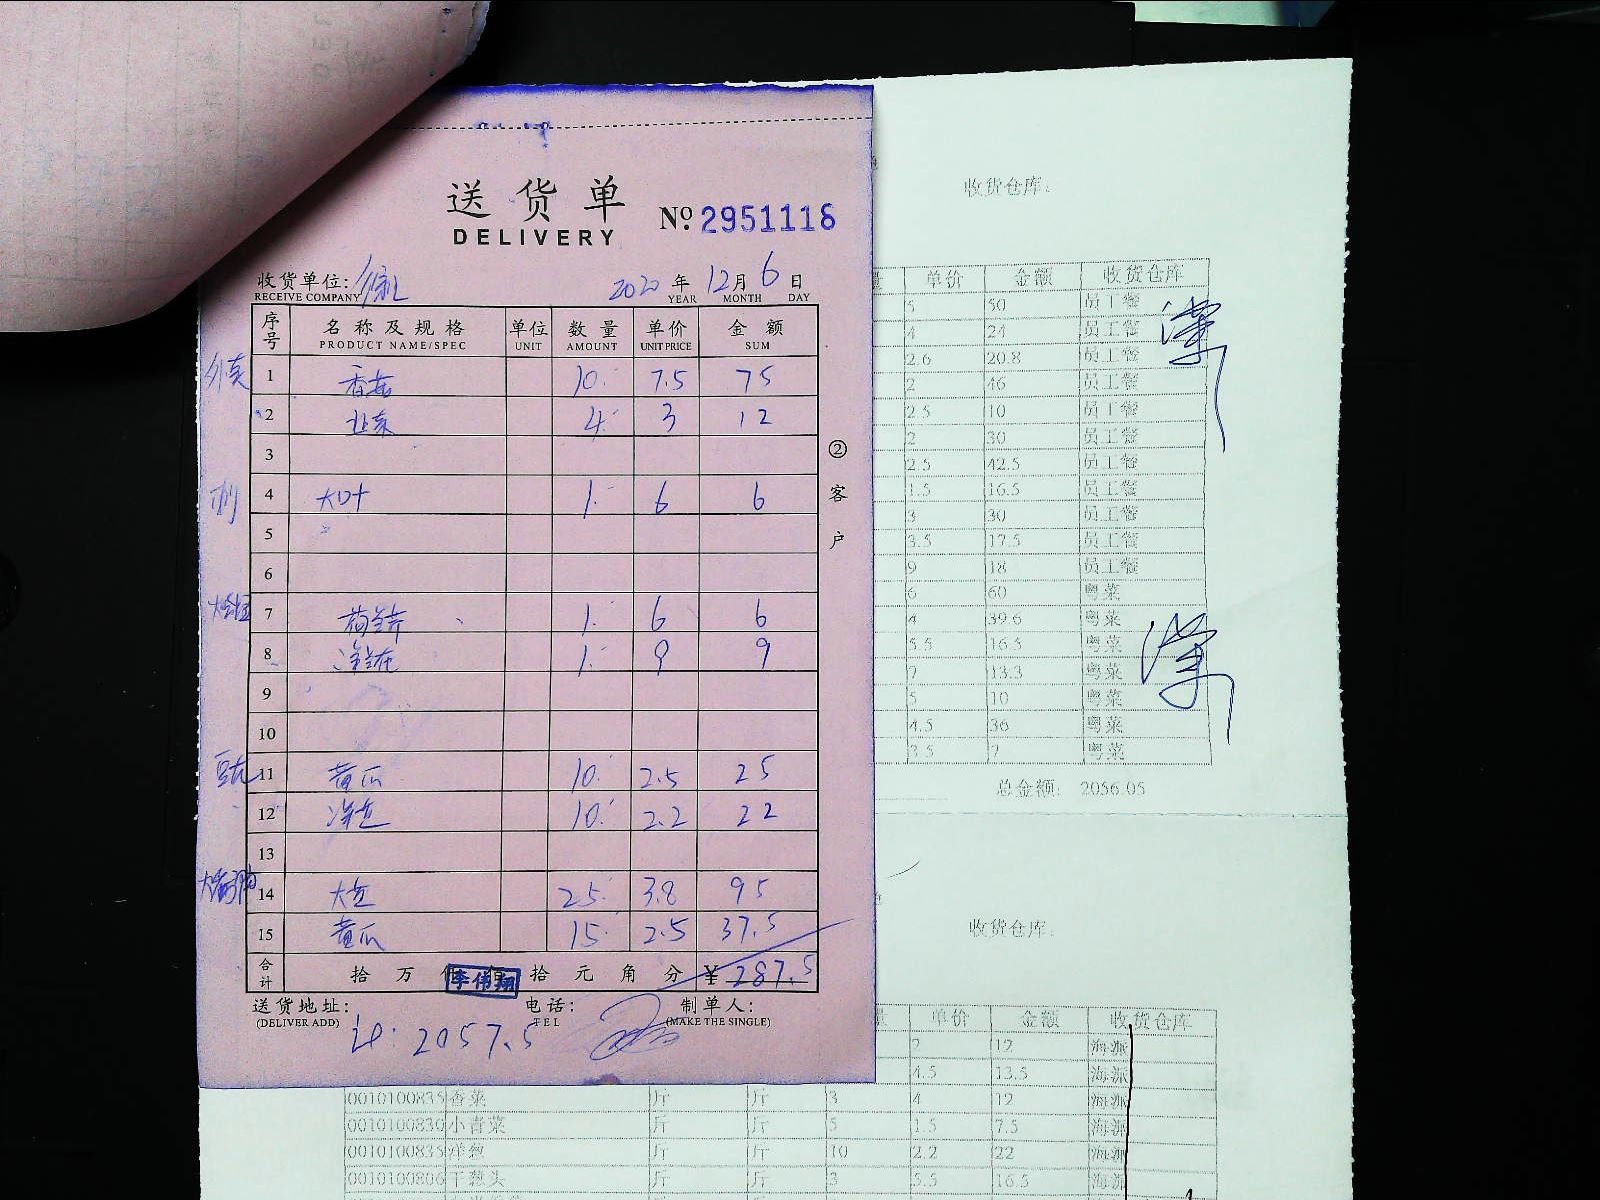 送货单
DELIVERY
№ 2951116
收货单位:
RECEIVE COMPANY
2020 年 12 月 6 日
YEAR MONTH DAY
序号 名称及规格 单位 数量 单价 金额
PRODUCT NAME/SPEC UNIT AMOUNT UNIT PRICE SUM
1 香菇 10. 7.5 75
2 韭菜 4. 3 12
3
4 大叶 1. 6 6
5
6
7 1. 6 6
8 1. 9 9
9
10
11 黄瓜 10. 2.5 25
12 10. 2.2 22
13
14 25. 3.8 95
15 黄瓜 15. 2.5 37.5
合计 拾 万 仟 佰 拾 元 角 分 ¥ 287.5
李伟翔
送货地址: 电话: 制单人:
(DELIVER ADD) TEL (MAKE THE SINGLE)
计: 2057.5
②客户
收货仓库:
单价 金额 收货仓库
5 50 员工餐
4 24 员工餐
2.6 20.8 员工餐
2 46 员工餐
2.5 10 员工餐
2 30 员工餐
2.5 42.5 员工餐
1.5 16.5 员工餐
3 30 员工餐
3.5 17.5 员工餐
9 18 员工餐
6 60 粤菜
4 39.6 粤菜
5.5 16.5 粤菜
7 13.3 粤菜
5 10 粤菜
4.5 36 粤菜
3.5 7 粤菜
总金额: 2056.05
收货仓库:
单价 金额 收货仓库
2 12 海派
4.5 13.5 海派
0010100835 香菜 斤 斤 3 4 12 海派
0010100830 小青菜 斤 斤 5 1.5 7.5 海派
0010100835 洋葱 斤 斤 10 2.2 22 海派
0010100806 干葱头 斤 斤 3 5.5 16.5 海派